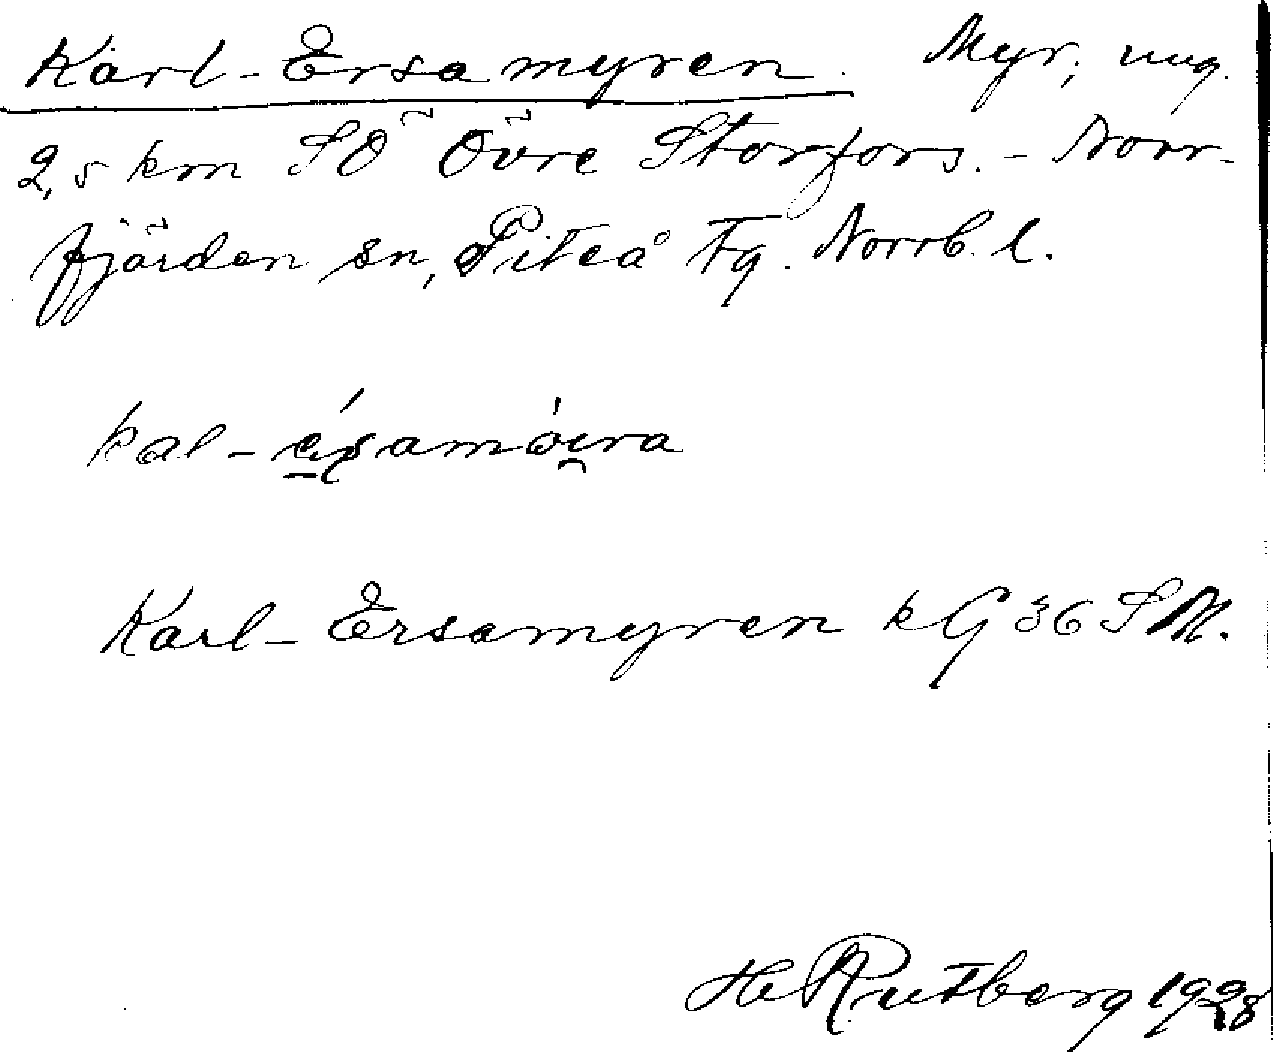 Karl-Ersamyren. Myr, ung.
2,5 km SÖ Övre Storfors. - Norr-
fjärden sn, Piteå tg. Norrb. l.
Karl-Ersamyren kG 36 SM.
H Rutberg 1928